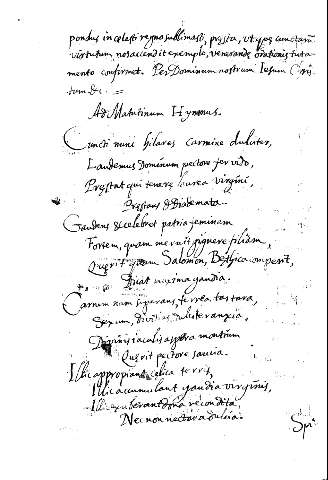 pondus in celesti regno sublimasti, pręsta, ut ipsę cunctarum
virtutum, nos accendit exemplo, veneranda orationis tuta-
mento confirmet. Per Dominum nostrum Iesum Chris
tum &c.
Ad Matutinum Hymnus.
Cuncti nunc hilares carmine dulciter,
Laudemus Dominum pectore fervido,
Pręstat qui tenerę laurea virgini,
& diademata.
Gaudens & celebret patria feminam
Fortem, quam meruit gignere filiam,
Quęrit quam Salomon, comperit,
maxima gaudia.
Carnem nam superans, terrea tartara,
Sexum, divitias
Divinis iaculis montium
Quęrit pectore saucia.
Illic appropians cęlica terris,
Illic accumulant gaudia virginis,
Illic exuberant dona recondita,
Nec non nectar